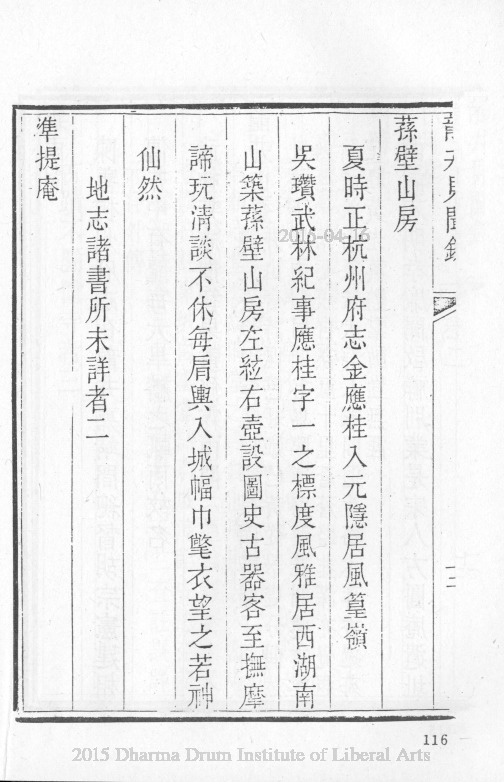 龍井見聞錄
蓀壁山房
夏時正杭州府志金應桂入元隱居風篁嶺
吳瓚武林紀事應桂字一之標度風雅居西湖南
山築蓀壁山房左絃右壺設圖史古器客至撫摩
諦玩清談不休每肩輿入城幅巾氅衣望之若神
仙然
地志諸書所未詳者二
準提庵
2015-04-16
116
2015 Dharma Drum Institute of Liberal Arts